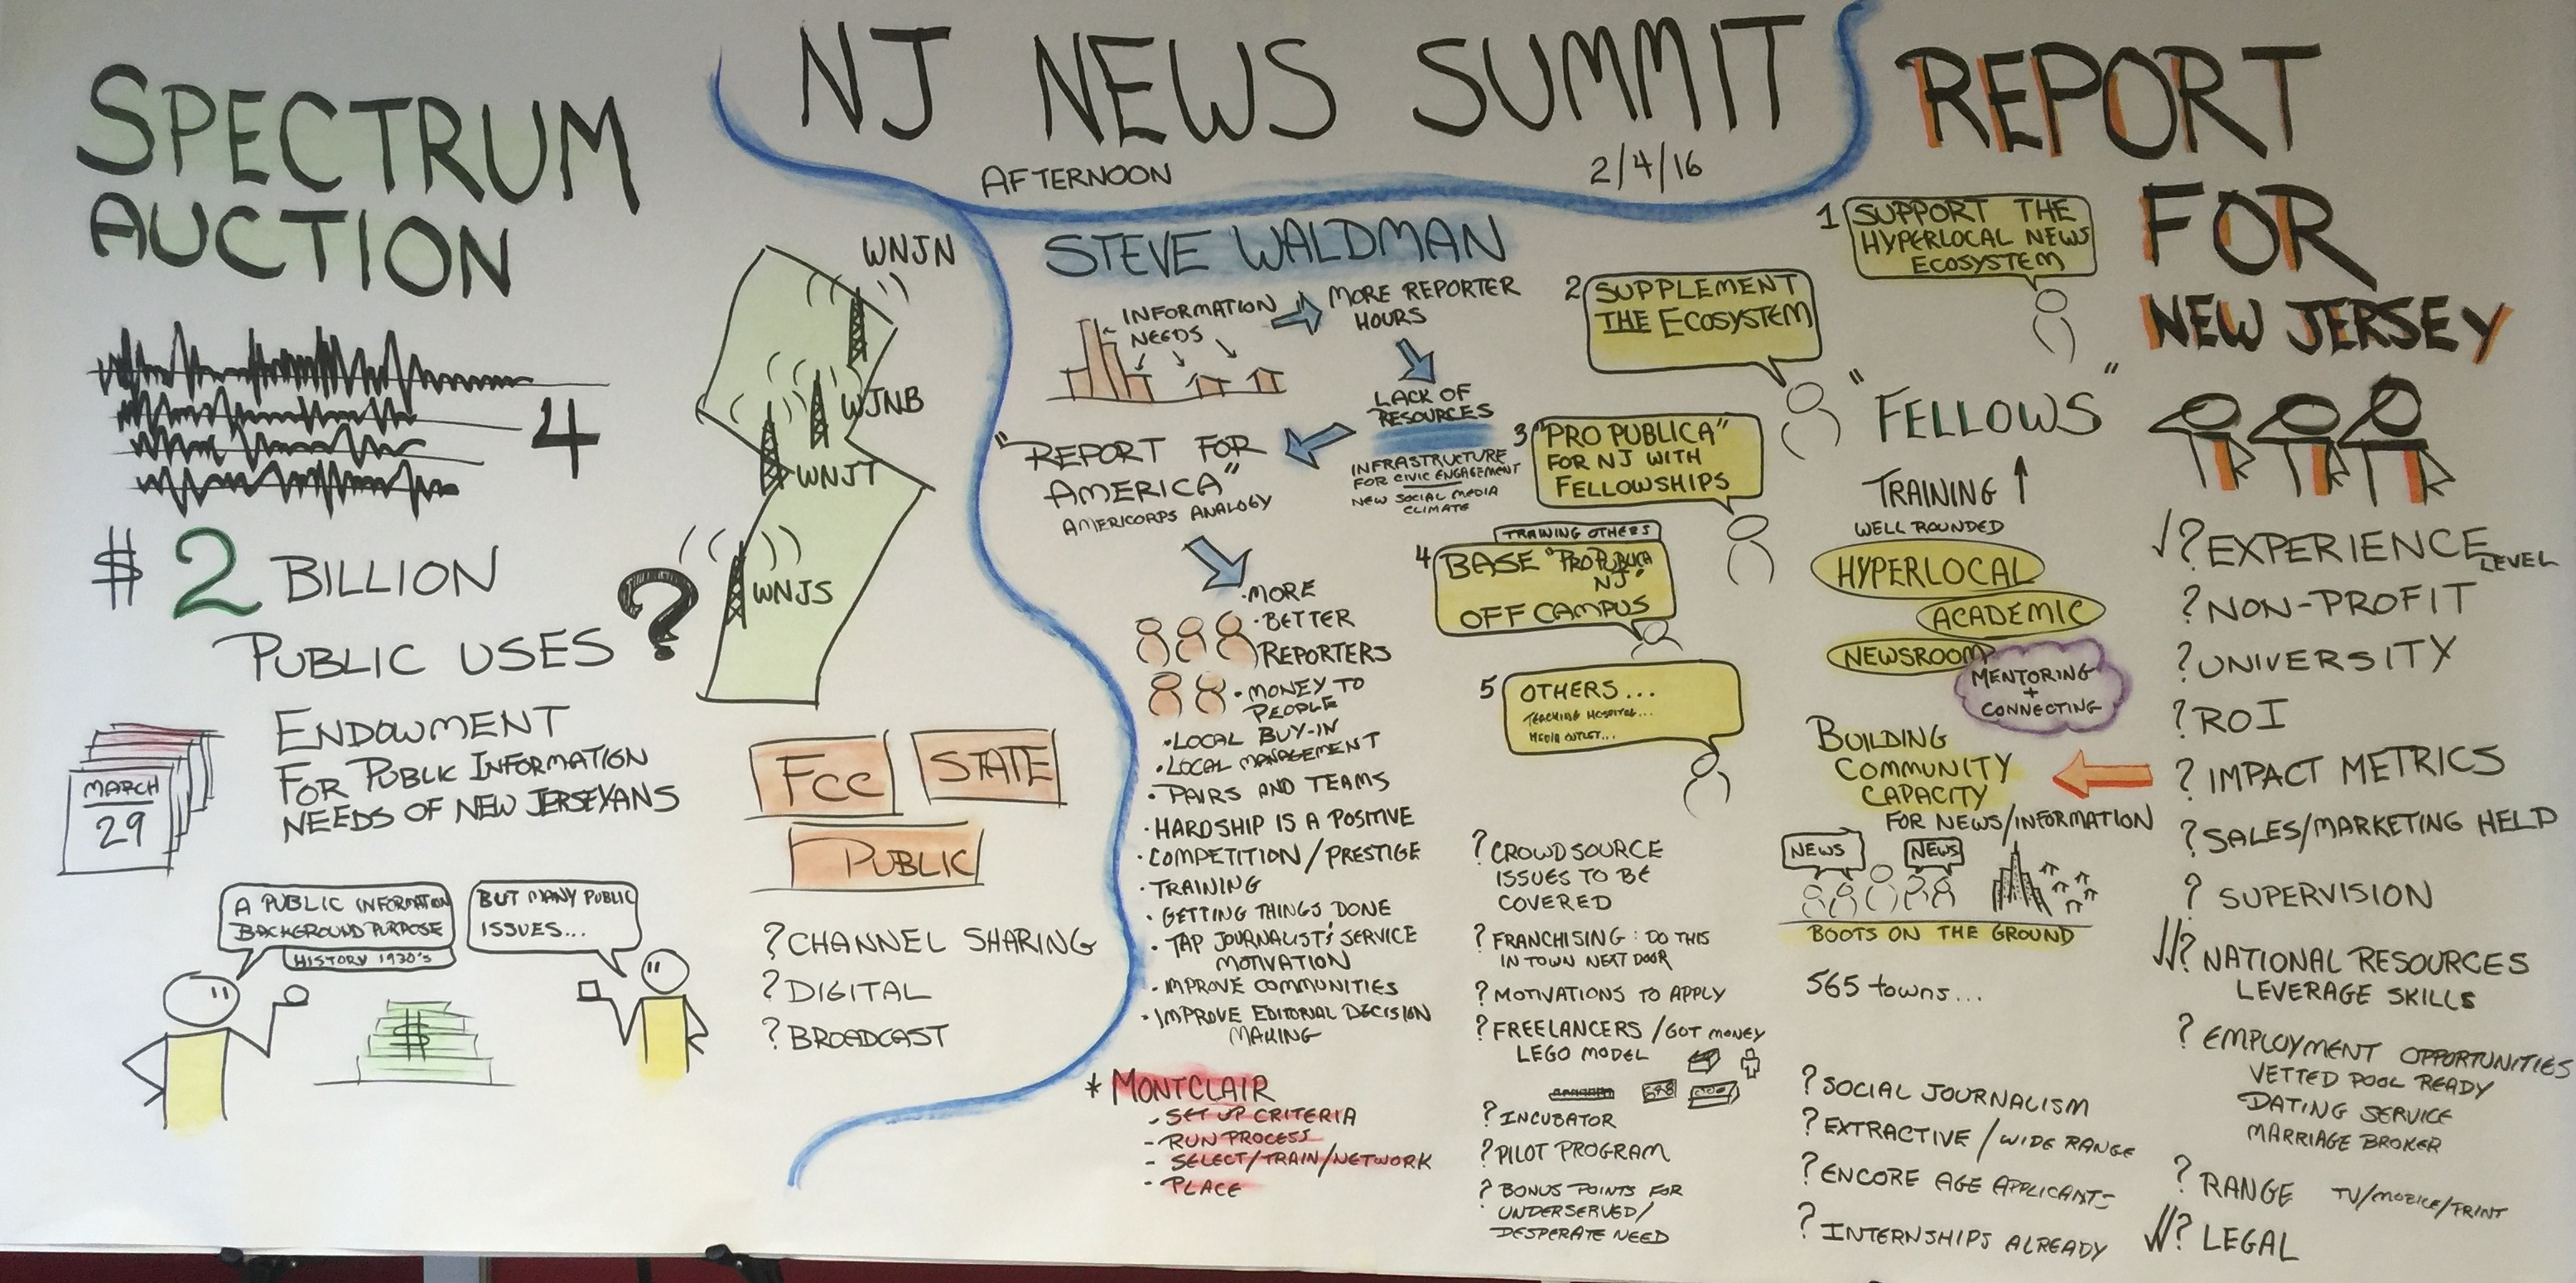 NJ NEWS SUMMIT
AFTERNOON
2/4/16
SPECTRUM
AUCTION
4
$ 2 BILLION
PUBLIC USES ?
ENDOWMENT
FOR PUBLIC INFORMATION
NEEDS OF NEW JERSEYANS
MARCH
29
A PUBLIC INFORMATION
BACKGROUND PURPOSE
HISTORY 1930'S
BUT MANY PUBLIC
ISSUES...
$
WNJN
WJNB
WNJT
WNJS
FCC
STATE
PUBLIC
? CHANNEL SHARING
? DIGITAL
? BROADCAST
STEVE WALDMAN
INFORMATION
NEEDS
MORE REPORTER
HOURS
LACK OF
RESOURCES
INFRASTRUCTURE
FOR CIVIC ENGAGEMENT
NEW SOCIAL MEDIA
CLIMATE
"REPORT FOR
AMERICA"
AMERICORPS ANALOGY
· MORE
· BETTER
REPORTERS
· MONEY TO
PEOPLE
· LOCAL BUY-IN
· LOCAL MANAGEMENT
· PAIRS AND TEAMS
· HARDSHIP IS A POSITIVE
· COMPETITION/PRESTIGE
· TRAINING
· GETTING THINGS DONE
· TAP JOURNALIST'S SERVICE
MOTIVATION
· IMPROVE COMMUNITIES
· IMPROVE EDITORIAL DECISION
MAKING
* MONTCLAIR
- SET UP CRITERIA
- RUN PROCESS
- SELECT/TRAIN/NETWORK
- PLACE
REPORT
FOR
NEW JERSEY
1 SUPPORT THE
HYPERLOCAL NEWS
ECOSYSTEM
2 SUPPLEMENT
THE ECOSYSTEM
3 "PRO PUBLICA"
FOR NJ WITH
FELLOWSHIPS
TRAINING OTHERS
4 BASE "PROPUBLICA
NJ"
OFF CAMPUS
5 OTHERS...
TEACHING HOSPITAL...
MEDIA OUTLET...
? CROWDSOURCE
ISSUES TO BE
COVERED
? FRANCHISING: DO THIS
IN TOWN NEXT DOOR
? MOTIVATIONS TO APPLY
? FREELANCERS/GOT MONEY
LEGO MODEL
? INCUBATOR
? PILOT PROGRAM
? BONUS POINTS FOR
UNDERSERVED/
DESPERATE NEED
"FELLOWS"
TRAINING
WELL ROUNDED
HYPERLOCAL
ACADEMIC
NEWSROOM
MENTORING
+
CONNECTING
BUILDING
COMMUNITY
CAPACITY
FOR NEWS/INFORMATION
NEWS
NEWS
BOOTS ON THE GROUND
565 towns...
? SOCIAL JOURNALISM
? EXTRACTIVE/WIDE RANGE
? ENCORE AGE APPLICANTS
? INTERNSHIPS ALREADY
√? EXPERIENCE LEVEL
? NON-PROFIT
? UNIVERSITY
? ROI
? IMPACT METRICS
? SALES/MARKETING HELD
? SUPERVISION
√√? NATIONAL RESOURCES
LEVERAGE SKILLS
? EMPLOYMENT OPPORTUNITIES
VETTED POOL READY
DATING SERVICE
MARRIAGE BROKER
? RANGE TV/MOBILE/PRINT
√√? LEGAL